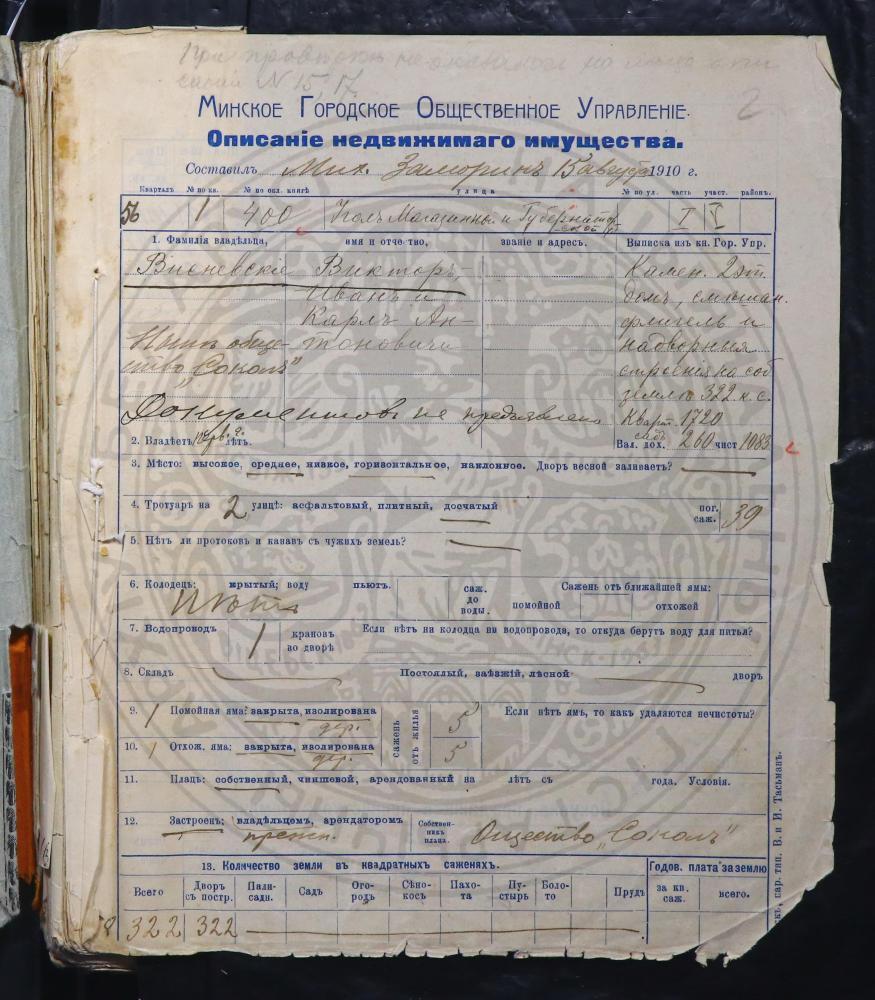 При провѣркѣ не оказалось на
N 15, 17.
2
Минское Городское Общественное Управленіе.
Описаніе недвижимаго имущества.
Составилъ Мих. Заморинъ 15 августа 1910 г.
Кварталъ № по кв. № по окл. книгѣ улица № по ул. часть участ. районъ.
56 1 400 Уголъ Магазинн. и Губернатор I V
ской ул
1. Фамилія владѣльца, имя и отчество, званіе и адресъ. Выписка изъ кн. Гор. Упр.
Висневскіе Викторъ Камен. 2 эт.
Иванъ и домъ, смѣшан.
Карлъ Ан- флигель и
Нынѣ обще- тоновичи надворныя
ство „Соколъ" строенія на соб
землѣ 322 к. с.
Документовъ не предъявлено Кварт. 1720
2. Владѣетъ лѣтъ. Вал. дох. 260 чист 1083
3. Мѣсто: высокое, среднее, низкое, горизонтальное, наклонное. Дворъ весной заливаетъ?
4. Тротуаръ на 2 улицѣ: асфальтовый, плитный, досчатый пог. саж. 39
5. Нѣтъ ли протоковъ и канавъ съ чужихъ земель?
6. Колодецъ: крытый; воду пьютъ. саж. до воды. Сажень отъ ближайшей ямы: помойной отхожей
7. Водопроводъ 1 крановъ во дворѣ Если нѣтъ ни колодца ни водопровода, то откуда берутъ воду для питья?
8. Складъ Постоялый, заѣзжій, лѣсной дворъ
9. 1 Помойная яма: закрыта, изолирована сажень отъ жилья 5 Если нѣтъ ямъ, то какъ удаляются нечистоты?
дер.
10. 1 Отхож. яма: закрыта, изолирована 5
дер.
11. Плацъ: собственный, чиншевой, арендованный на лѣтъ съ года. Условія.
12. Застроен: владѣльцемъ, арендаторомъ Собственникъ плаца. Общество „Соколъ"
прежн.
13. Количество земли въ квадратныхъ саженяхъ. Годов. плата за землю
Всего Дворъ съ постр. Пали-садн. Садъ Ого-родъ Сѣно-косъ Пахо-та Пу-стырь Боло-то Прудъ за кв. саж. всего.
322 322
скъ, пар. тип. В. и И. Тасьманъ.